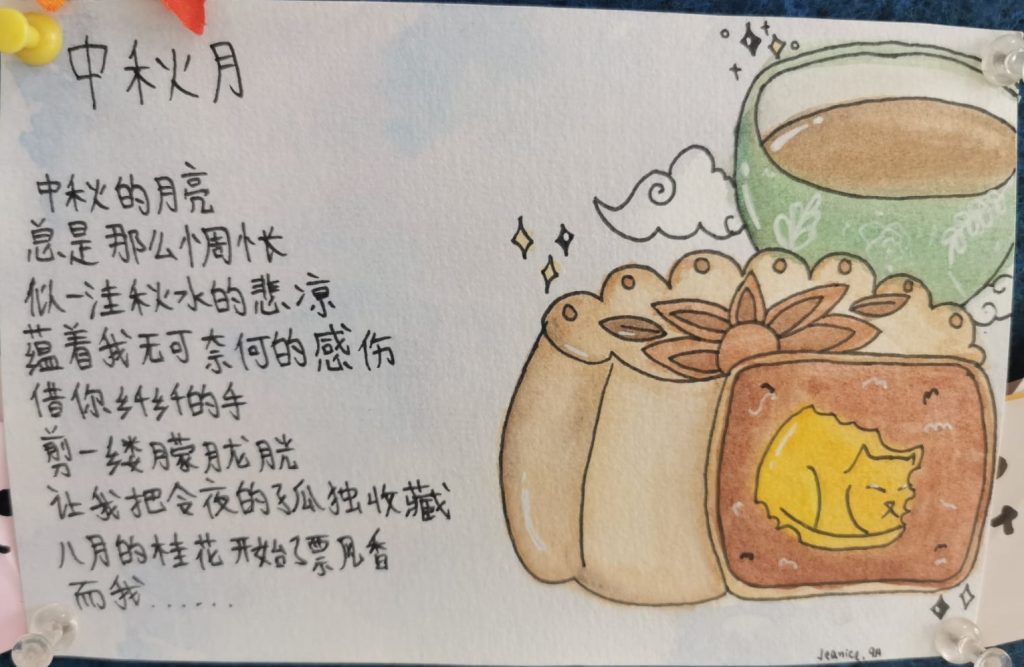 中秋月
中秋的月亮
总是那么惆怅
似一洼秋水的悲凉
蕴着我无可奈何的感伤
借你纤纤的手
剪一缕朦胧胱
让我把今夜的孤独收藏
八月的桂花开始了飘香
而我......
Jeanice, 9A